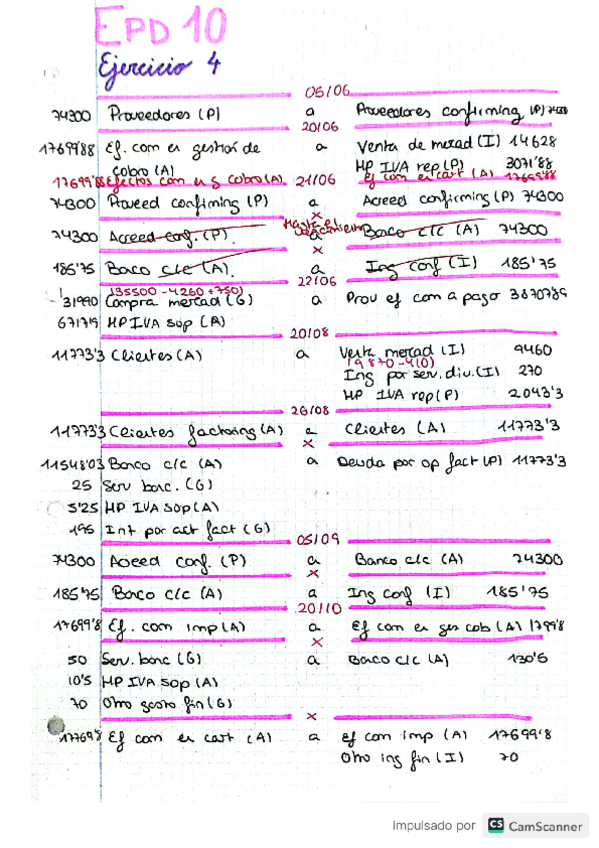 EPD 10
Ejercicio 4
05/06
74300 Proveedores (P) a Proveedores confirming (P) 74300
20/06
17699'88 Ef. com en gestión de cobro (A) a Venta de mercad (I) 14628
HP IVA rep (P) 3071'88
17699'88 Efectos com en g cobro (A) 21/06 Ef com en cart (A) 17699'88
74300 Proveed confirming (P) a Acreed confirming (P) 74300
x
Hasta el vencimiento
74300 Acreed conf. (P) a Banco c/c (A) 74300
x
185'75 Banco c/c (A) a Ing conf (I) 185'75
(35500 - 4260 + 750) 22/06
31990 Compra mercad (G) a Prov ef com a pago 38707'89
6717'9 HP IVA sop (A)
20/08
11773'3 Clientes (A) a Venta mercad (I) 9460
(9870 - 410)
Ing por serv. div. (I) 270
HP IVA rep (P) 2043'3
26/08
11773'3 Clientes factoring (A) a Clientes (A) 11773'3
x
11548'03 Banco c/c (A) a Deuda por op fact (P) 11773'3
25 Serv banc. (G)
5'25 HP IVA sop (A)
195 Int por act fact (G)
05/09
74300 Acreed conf. (P) a Banco c/c (A) 74300
x
185'75 Banco c/c (A) a Ing conf (I) 185'75
20/10
17699'8 Ef. com imp (A) a Ef com en ges cob (A) 17699'8
x
50 Serv. banc (G) a Banco c/c (A) 130'5
10'5 HP IVA sop (A)
70 Otro gasto fin (G)
x
17769'8 Ef com en cart (A) a ef com imp (A) 17699'8
Otro ing fin (I) 70
Impulsado por CS CamScanner